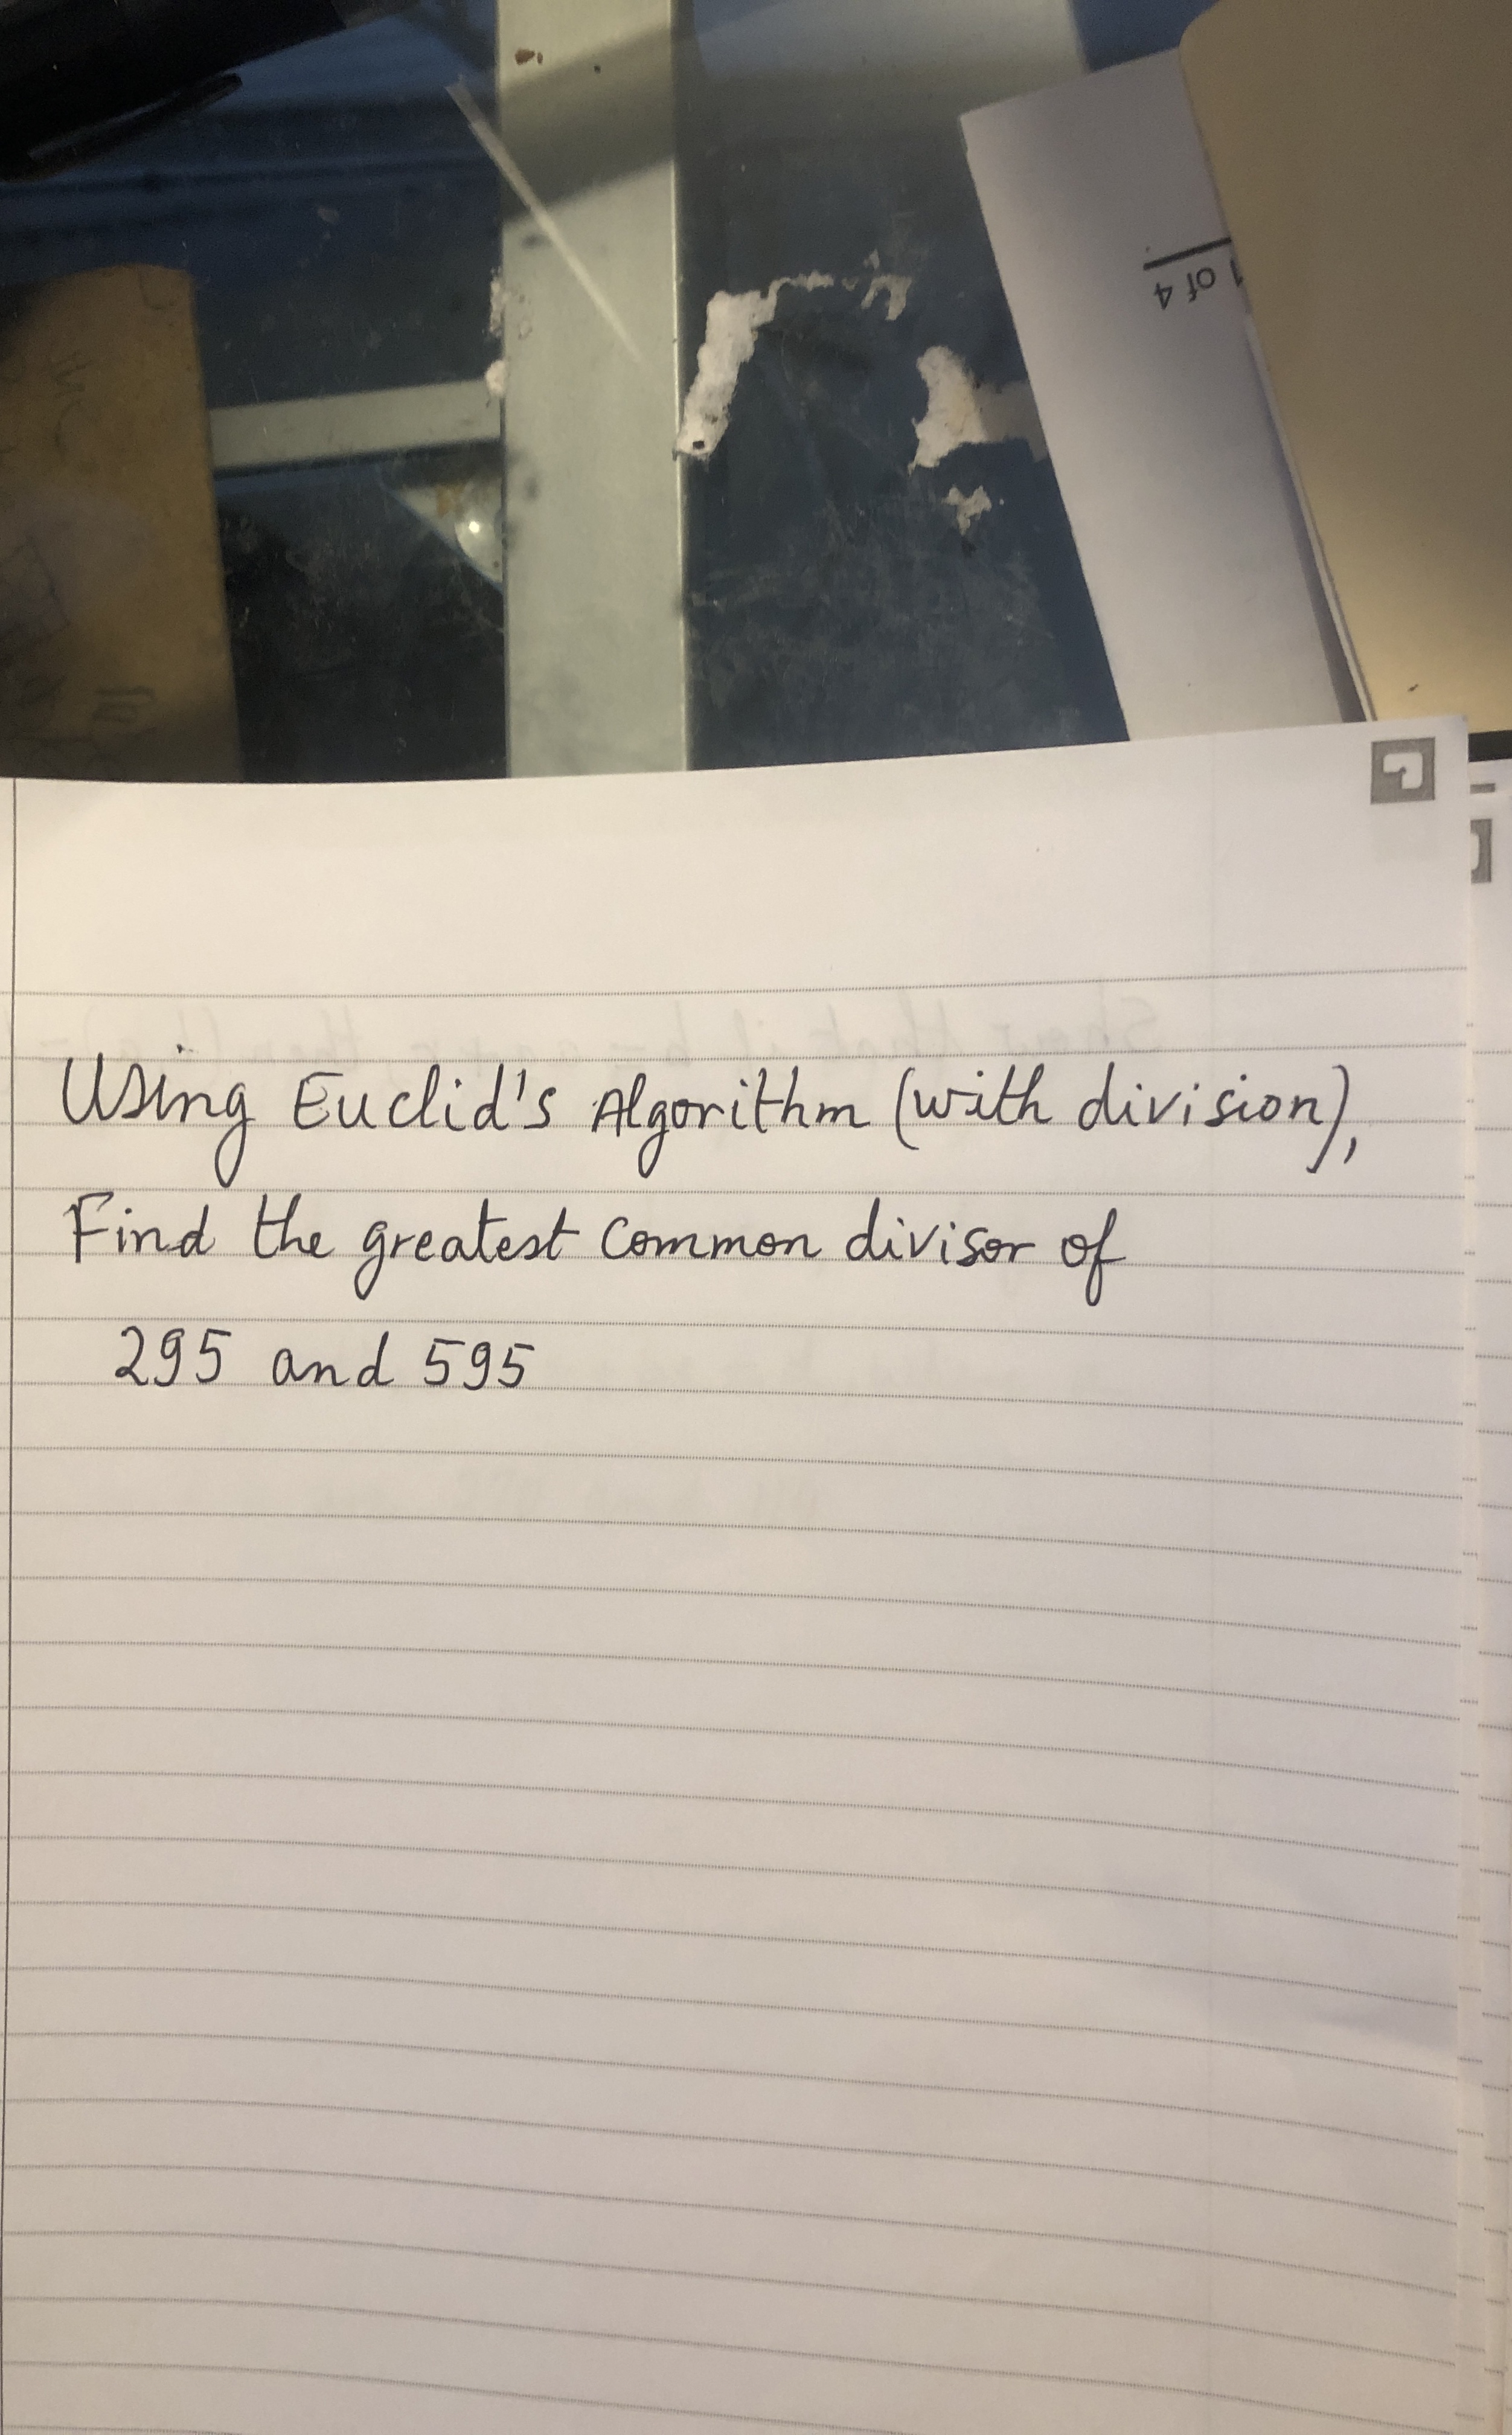 1 of 4
Using Euclid's Algorithm (with division),
Find the greatest common divisor of
295 and 595